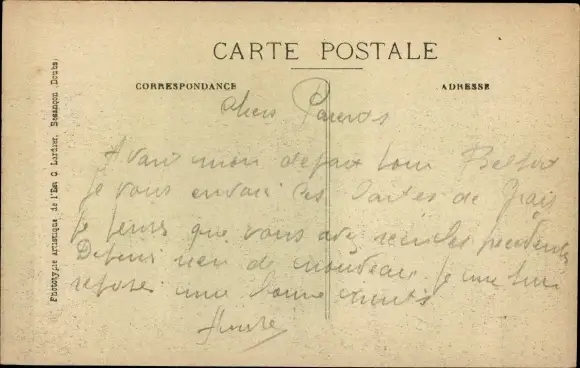 CARTE POSTALE
CORRESPONDANCE
ADRESSE
Phototypie artistique de l'Est C. Lardier, Besançon (Doubs)
chers Parents
Avant mon depart pour Belfort
je vous envoi les cartes de
je pense que vous avez
Depuis rien de nouveau je me suis
reposé une bonne